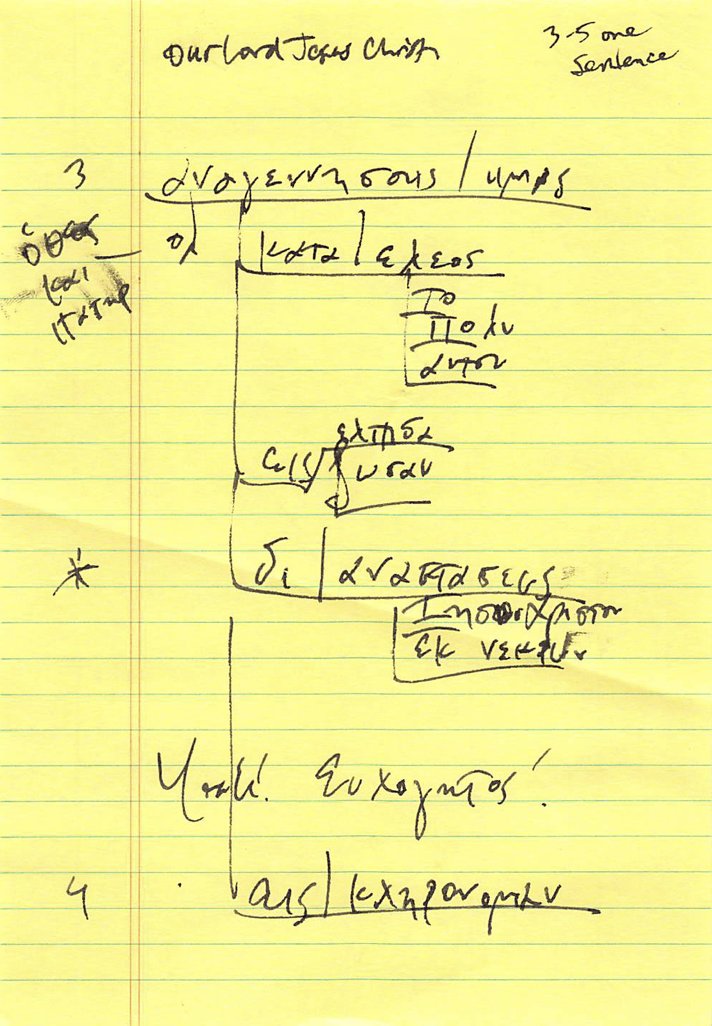 Our Lord Jesus Christ
3-5 one
Sentence
3
αναγεννησας / ημας
ὁ θεος
και
πατηρ
κατα | ελεος
το
πολυ
αυτου
εις
ελπιδα
ωσαν
* δι | αναστασεως
Ιησου Χριστου
εκ νεκρων
Ευλογητος!
4
εις | κληρονομιαν